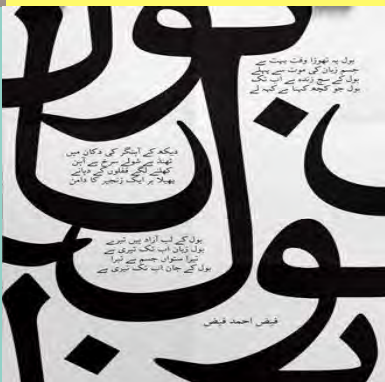 بول
بول یہ تھوڑا وقت بہت ہے
جسم زبان کی موت سے پہلے
بول کے سچ زندہ ہے اب تک
بول جو کچھ کہنا ہے کہہ لے
دیکھ کے آہنگر کی دکان میں
تھند ہے شولے سرخ ہے آہن
کھلنے لگے قفلوں کے دہانے
پھیلا ہر ایک زنجیر کا دامن
بول کے لب آزاد ہیں تیرے
بول زبان اب تک تیری ہے
تیرا ستواں جسم ہے تیرا
بول کے جان اب تک تیری ہے
فیض احمد فیض